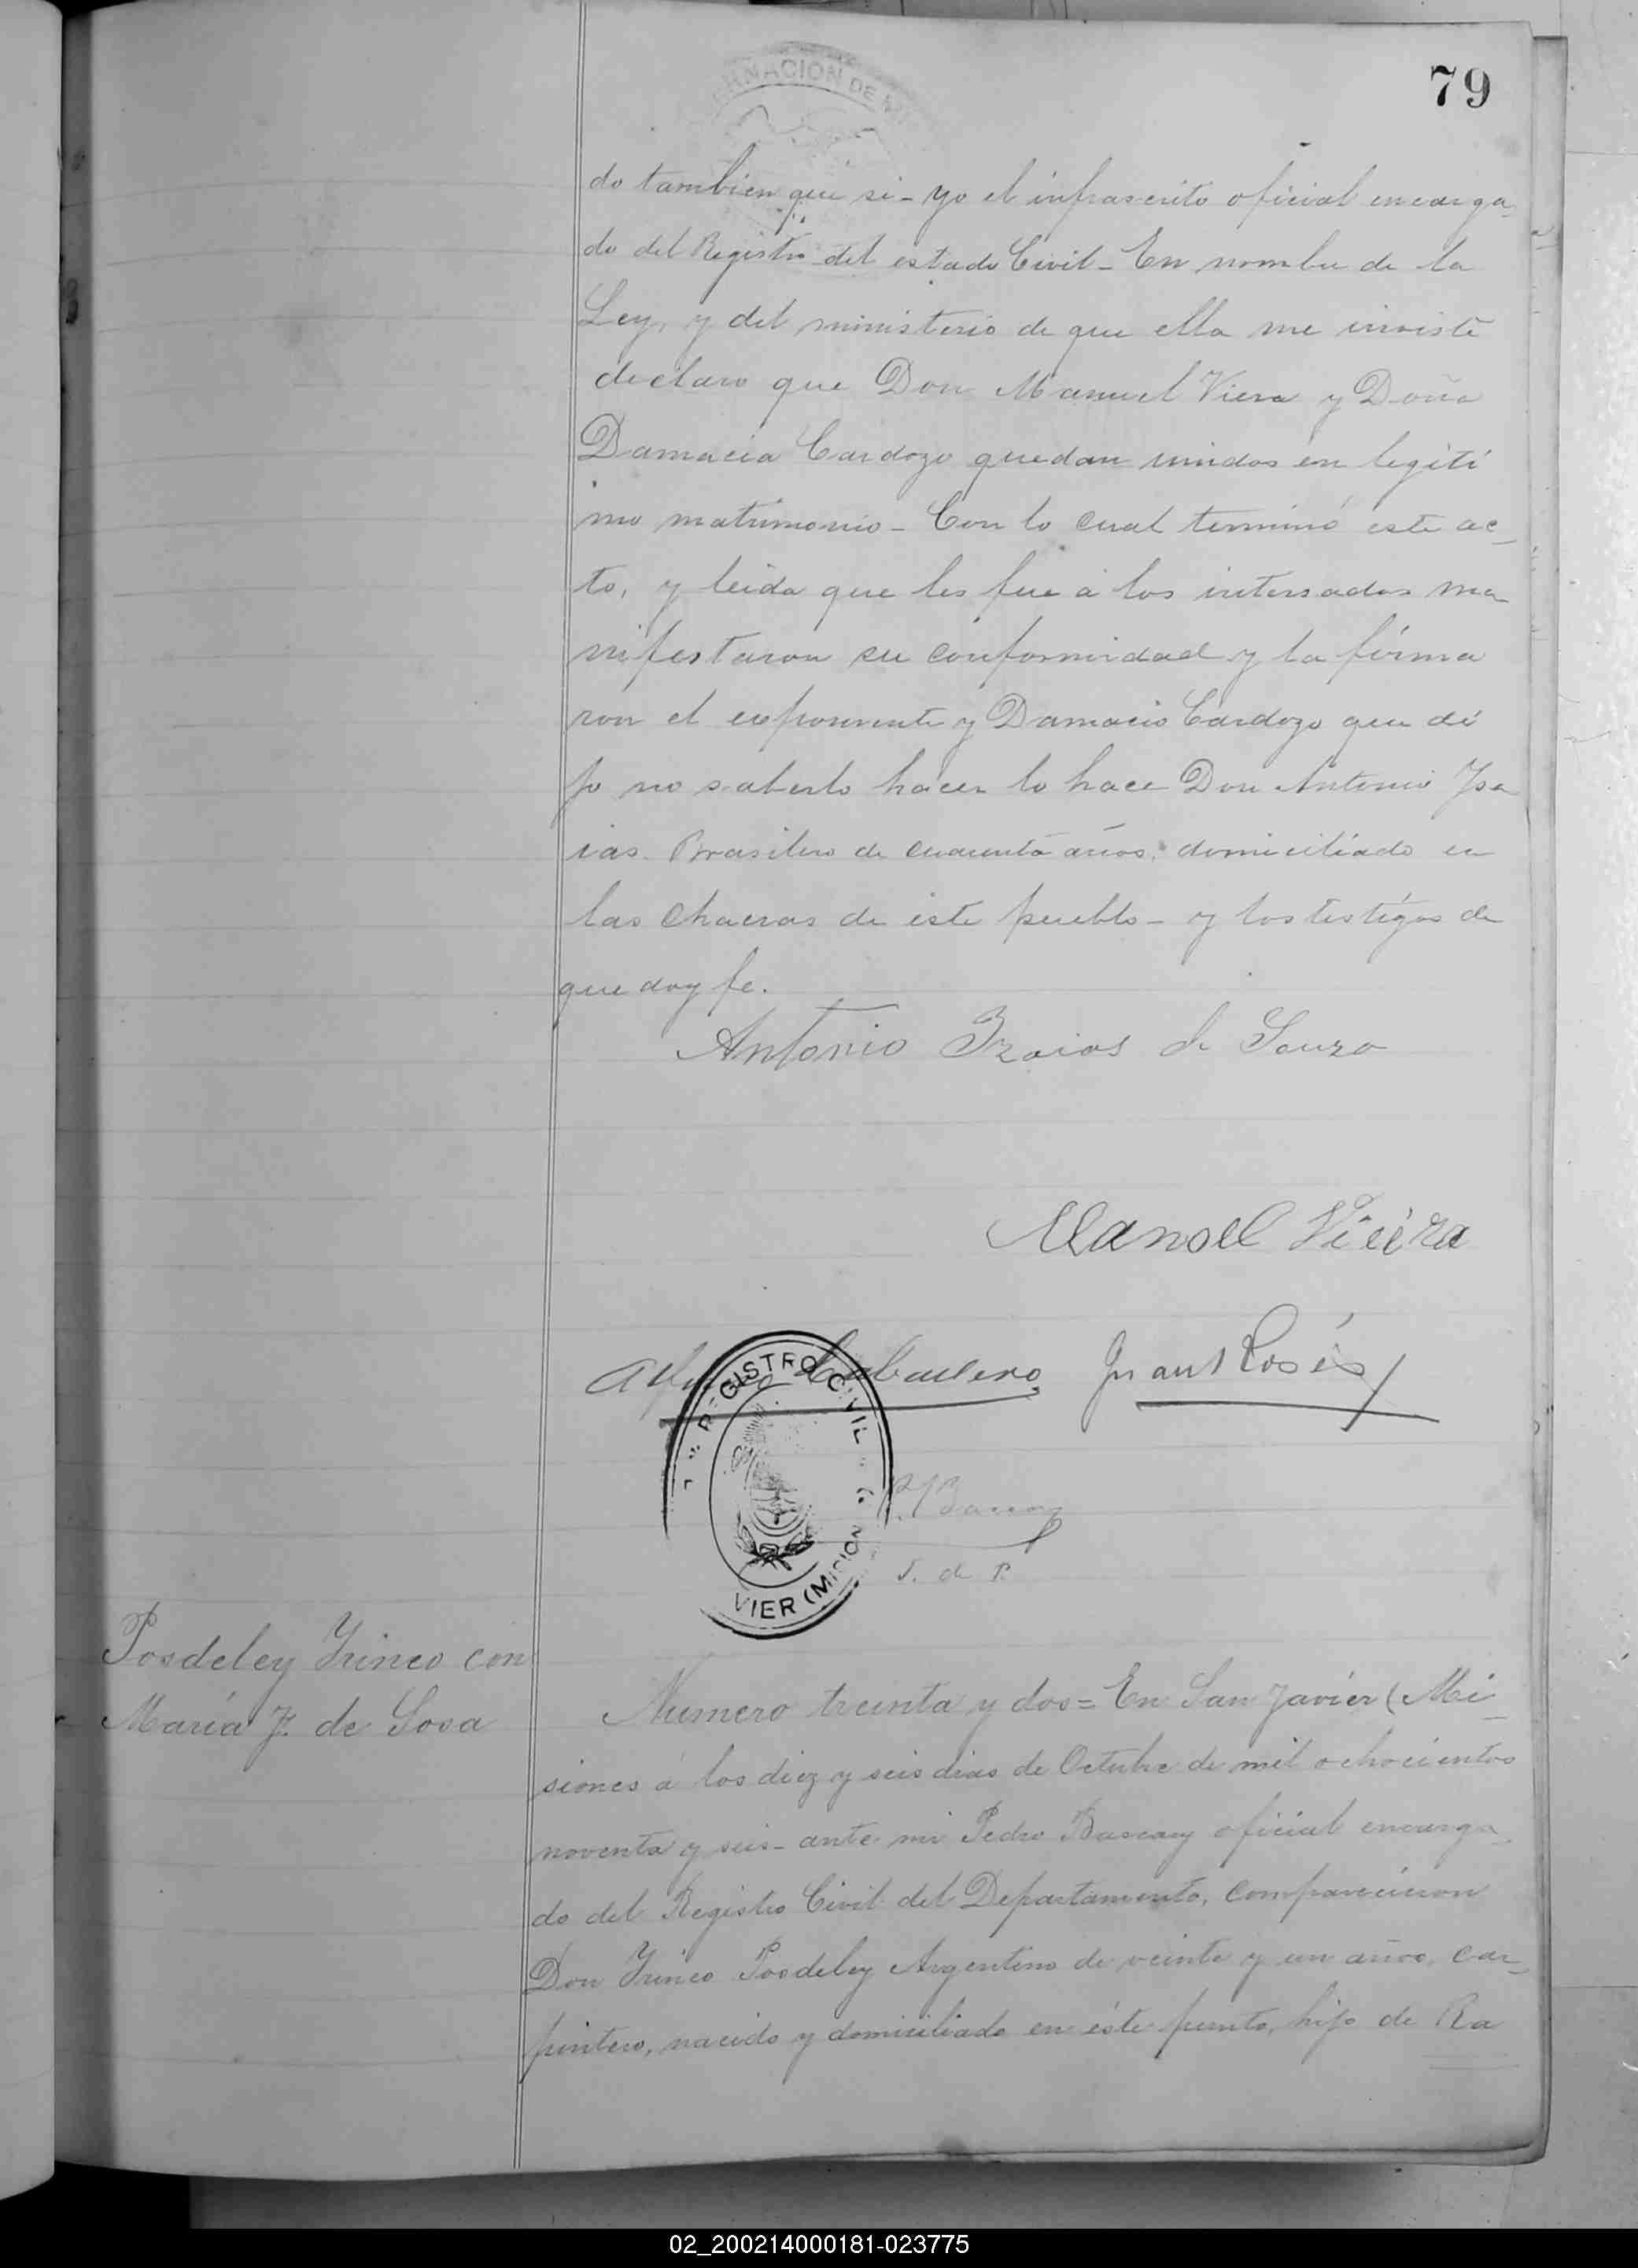 79
RNACION DE
do tambien que si - yo el infrascrito oficial encarga
do del Registro del estado Civil - En nombre de la
Ley, y del ministerio de que ella me inviste
declaro que Don Manuel Viera y Doña
Damacia Cardozo quedan unidos en legiti
mo matrimonio - Con lo cual terminó este ac-
to, y leida que les fue á los intersados ma
nifestaron su conformidad y la firma
ron el exponente y Damacio Cardozo que di
jo no saberlo hacer lo hace Don Antonio Ysa
ias. Brasilero de cuarenta años, domiciliado en
las chacras de este pueblo - y los testigos de
que doy fe.
Antonio Izaias de Souza
Manoel Viéira
Caballero Juan Rosés
REGISTRO CIVIL
J. de P.
VIER (MISION
Posdeley Yrineo con
María F. de Sosa
Numero treinta y dos = En San Javier (Mi-
siones á los diez y seis dias de Octubre de mil ochocientos
noventa y seis - ante mi Pedro Bascary oficial encarga
do del Registro Civil del Departamento, comparecieron
Don Yrineo Posdeley Argentino de veinte y un años, car-
pintero, nacido y domiciliado en éste punto, hijo de Ra
02_200214000181-023775